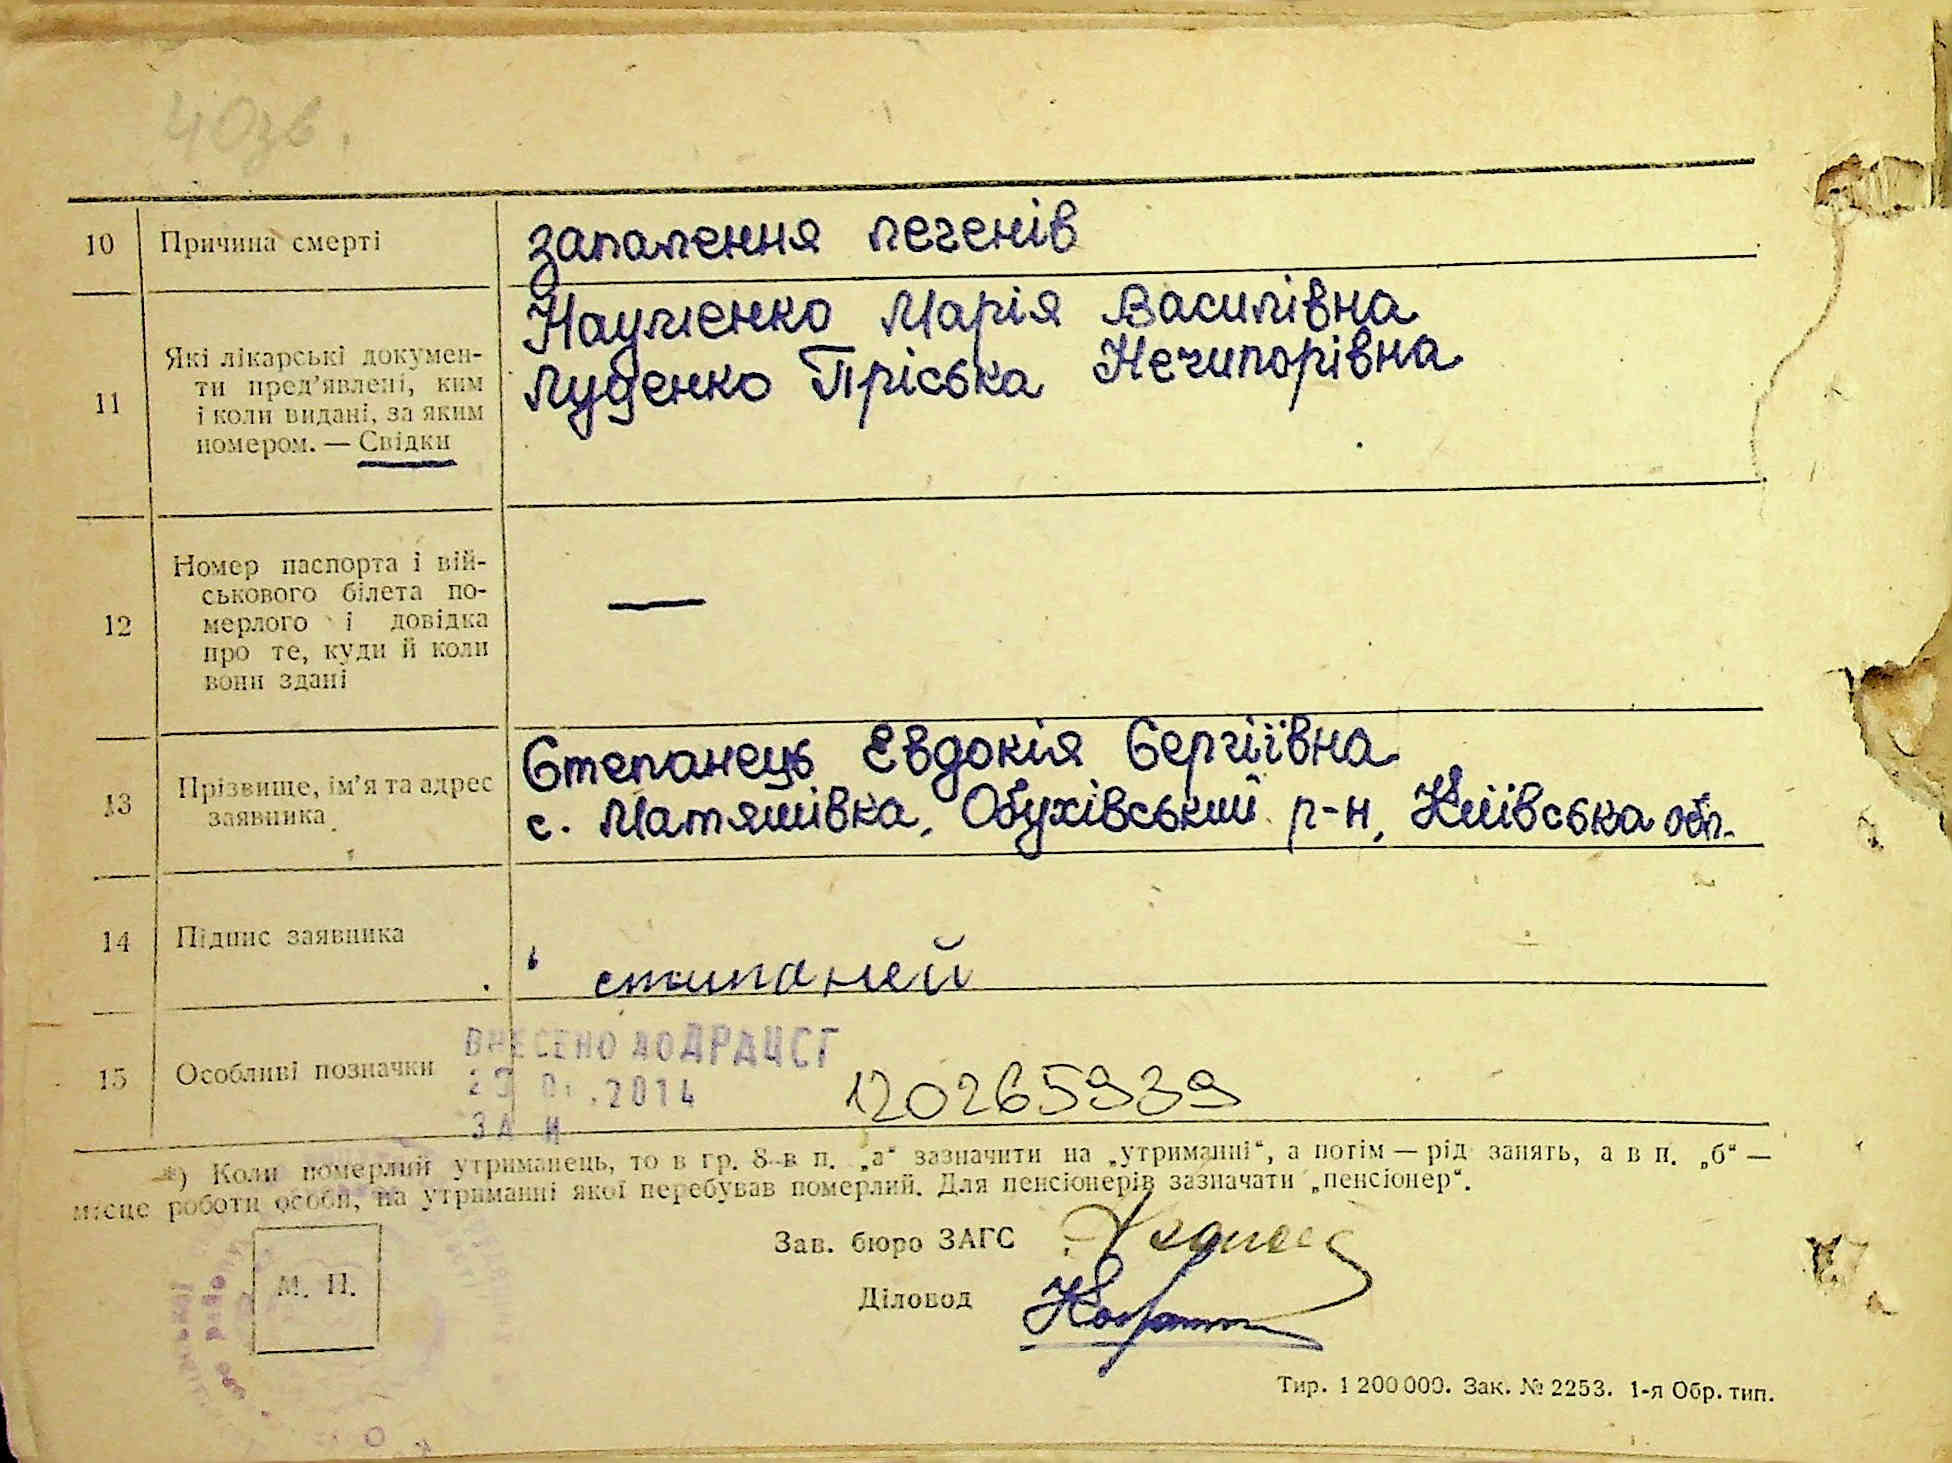 40зв.
10 Причина смерті запалення легенів
11 Які лікарські докумен-
ти пред'явлені, ким
і коли видані, за яким
номером. — Свідки
Науменко Марія Василівна
Луденко Пріська Нечипорівна
12 Номер паспорта і вій-
ськового білета по-
мерлого і довідка
про те, куди й коли
вони здані
—
13 Прізвище, ім'я та адрес
заявника
Степанець Евдокія Сергіївна
с. Матяшівка, Обухівський р-н, Київська обл.
14 Підпис заявника стипаней
15 Особливі позначки
ВНЕСЕНО до ДРАЦСГ
.2014
ЗА №
120265939
*) Коли померлий утриманець, то в гр. 8 в п. „а“ зазначити на „утриманні“, а потім — рід занять, а в п. „б“ —
місце роботи особи, на утриманні якої перебував померлий. Для пенсіонерів зазначати „пенсіонер“.
Зав. бюро ЗАГС
М. П.
Діловод
Тир. 1 200 000. Зак. № 2253. 1-я Обр. тип.